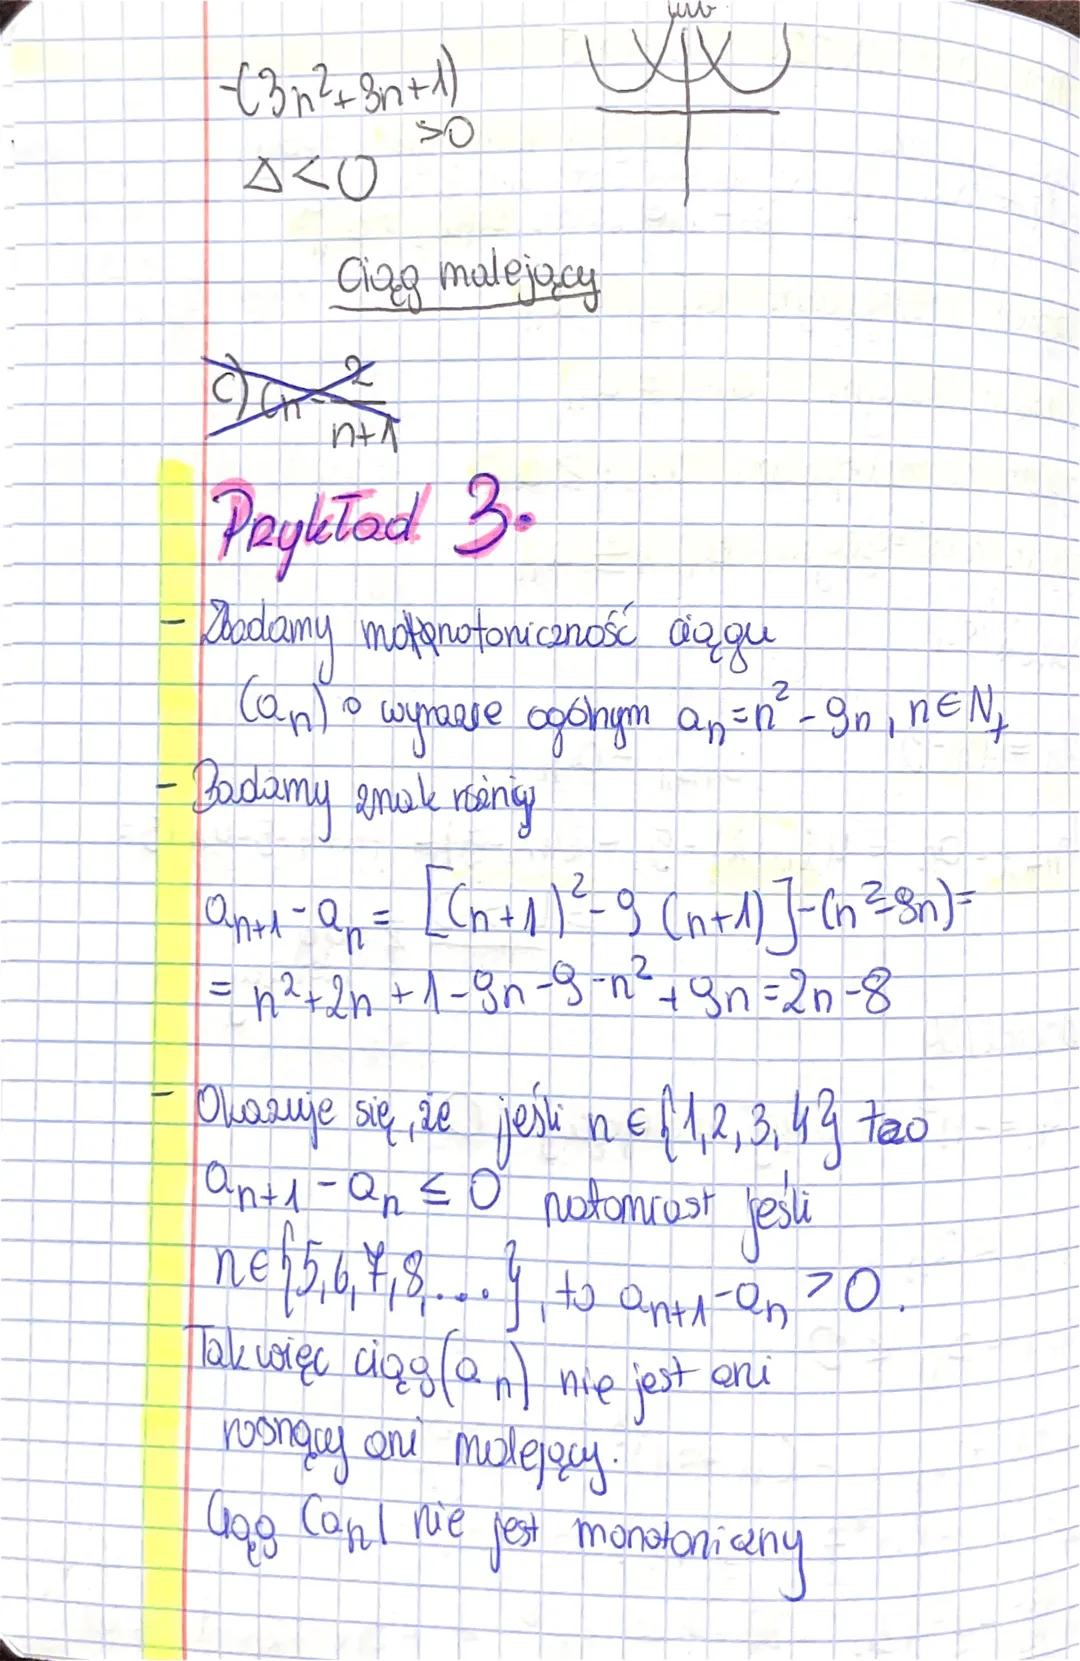 lub
-(3n²+3n+1)
>0
Δ<0
Ciąg malejący
c) Cn = 2/n+1
Przykład 3.
- Zbadamy monotoniczność ciągu
(an) o wyrazie ogólnym an=n²-9n, n∈N+
- Badamy znak różnicy
an+1-an= [(n+1)²-9(n+1)]-(n²-9n)=
= n²+2n+1-9n-9-n²+9n=2n-8
- Okazuje się, że jeśli n∈{1,2,3,4} to
an+1-an ≤ 0 natomiast jeśli
n∈{5,6,7,8,...}, to an+1-an >0.
Tak więc ciąg (an) nie jest ani
rosnący ani malejący.
Ciąg (an) nie jest monotoniczny